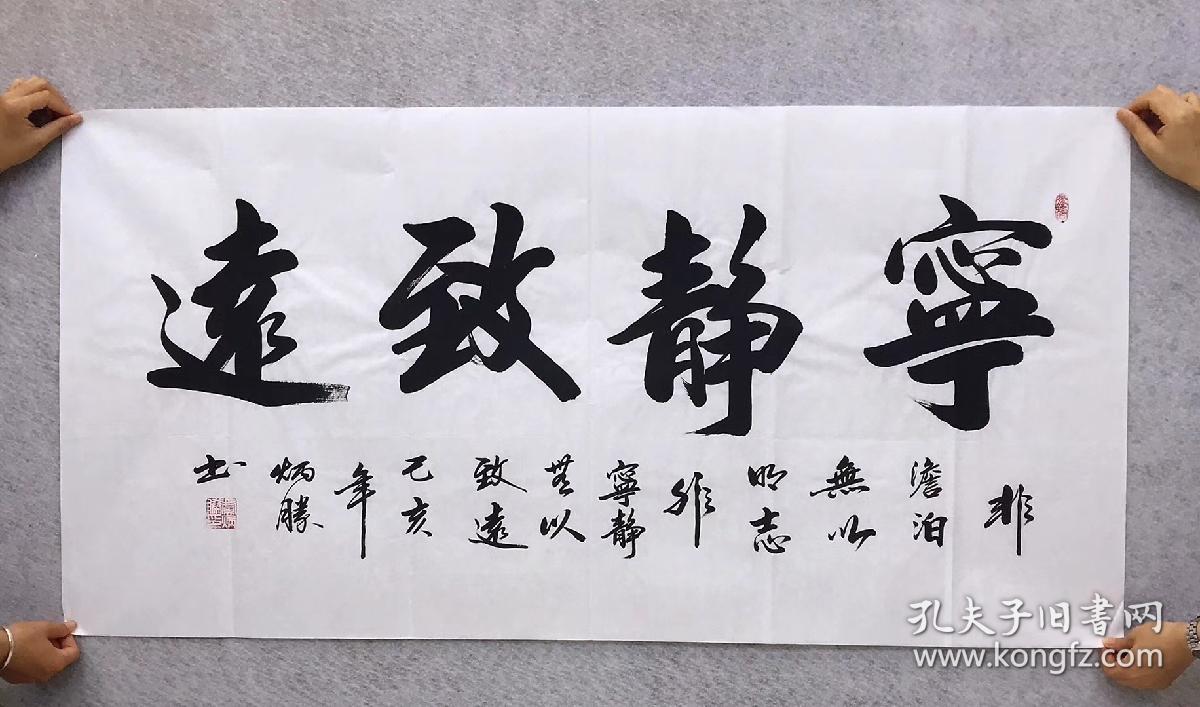 寧靜致遠
非
澹泊
無以
明志
非
寧靜
無以
致遠
己亥
年
炳勝
书
孔夫子旧書网
www.kongfz.com